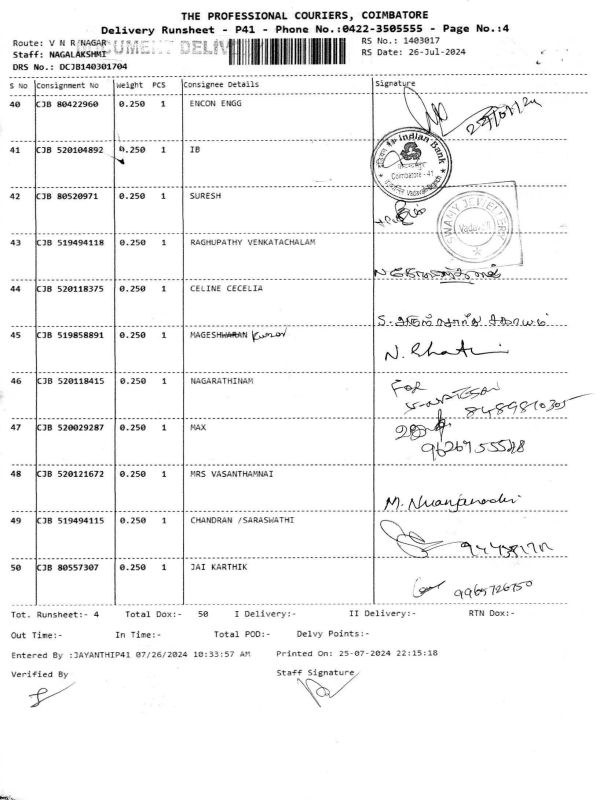 THE PROFESSIONAL COURIERS, COIMBATORE
Delivery Runsheet - P41 - Phone No.:0422-3505555 - Page No.:4
Route: V N R NAGAR
RS No.: 1403017
Staff: NAGALAKSHMI
RS Date: 26-Jul-2024
DRS No.: DCJB140301704
S No Consignment No Weight PCS Consignee Details Signature
40 CJB 80422960 0.250 1 ENCON ENGG
41 CJB 520104892 0.250 1 IB
Indian Bank
Coimbatore - 41
42 CJB 80520971 0.250 1 SURESH
SWAMY JEWELLERY
43 CJB 519494118 0.250 1 RAGHUPATHY VENKATACHALAM
44 CJB 520118375 0.250 1 CELINE CECELIA
45 CJB 519858891 0.250 1 MAGESHWARAN Kumar
46 CJB 520118415 0.250 1 NAGARATHINAM
FOR
8489810305
47 CJB 520029287 0.250 1 MAX
48 CJB 520121672 0.250 1 MRS VASANTHAMNAI
49 CJB 519494115 0.250 1 CHANDRAN /SARASWATHI
50 CJB 80557307 0.250 1 JAI KARTHIK
9965726750
Tot. Runsheet:- 4 Total Dox:- 50 I Delivery:- II Delivery:- RTN Dox:-
Out Time:- In Time:- Total POD:- Delvy Points:-
Entered By :JAYANTHIP41 07/26/2024 10:33:57 AM Printed On: 25-07-2024 22:15:18
Verified By Staff Signature